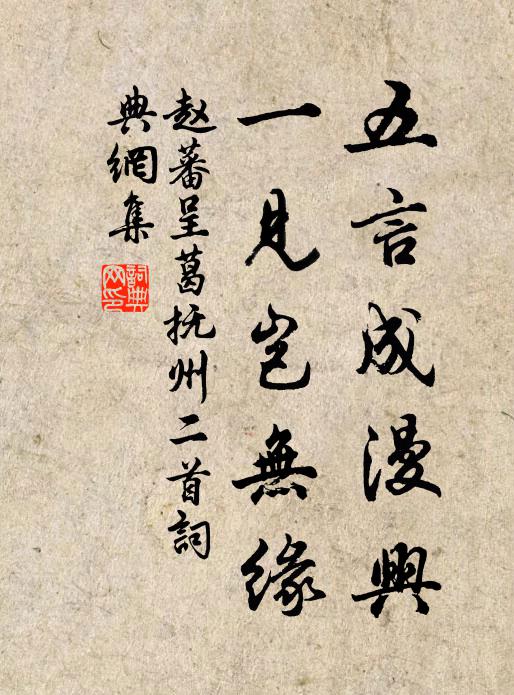 五言成漫興
一見豈無緣
赵蕃呈葛抚州二首詞
典網集
詞典
网印